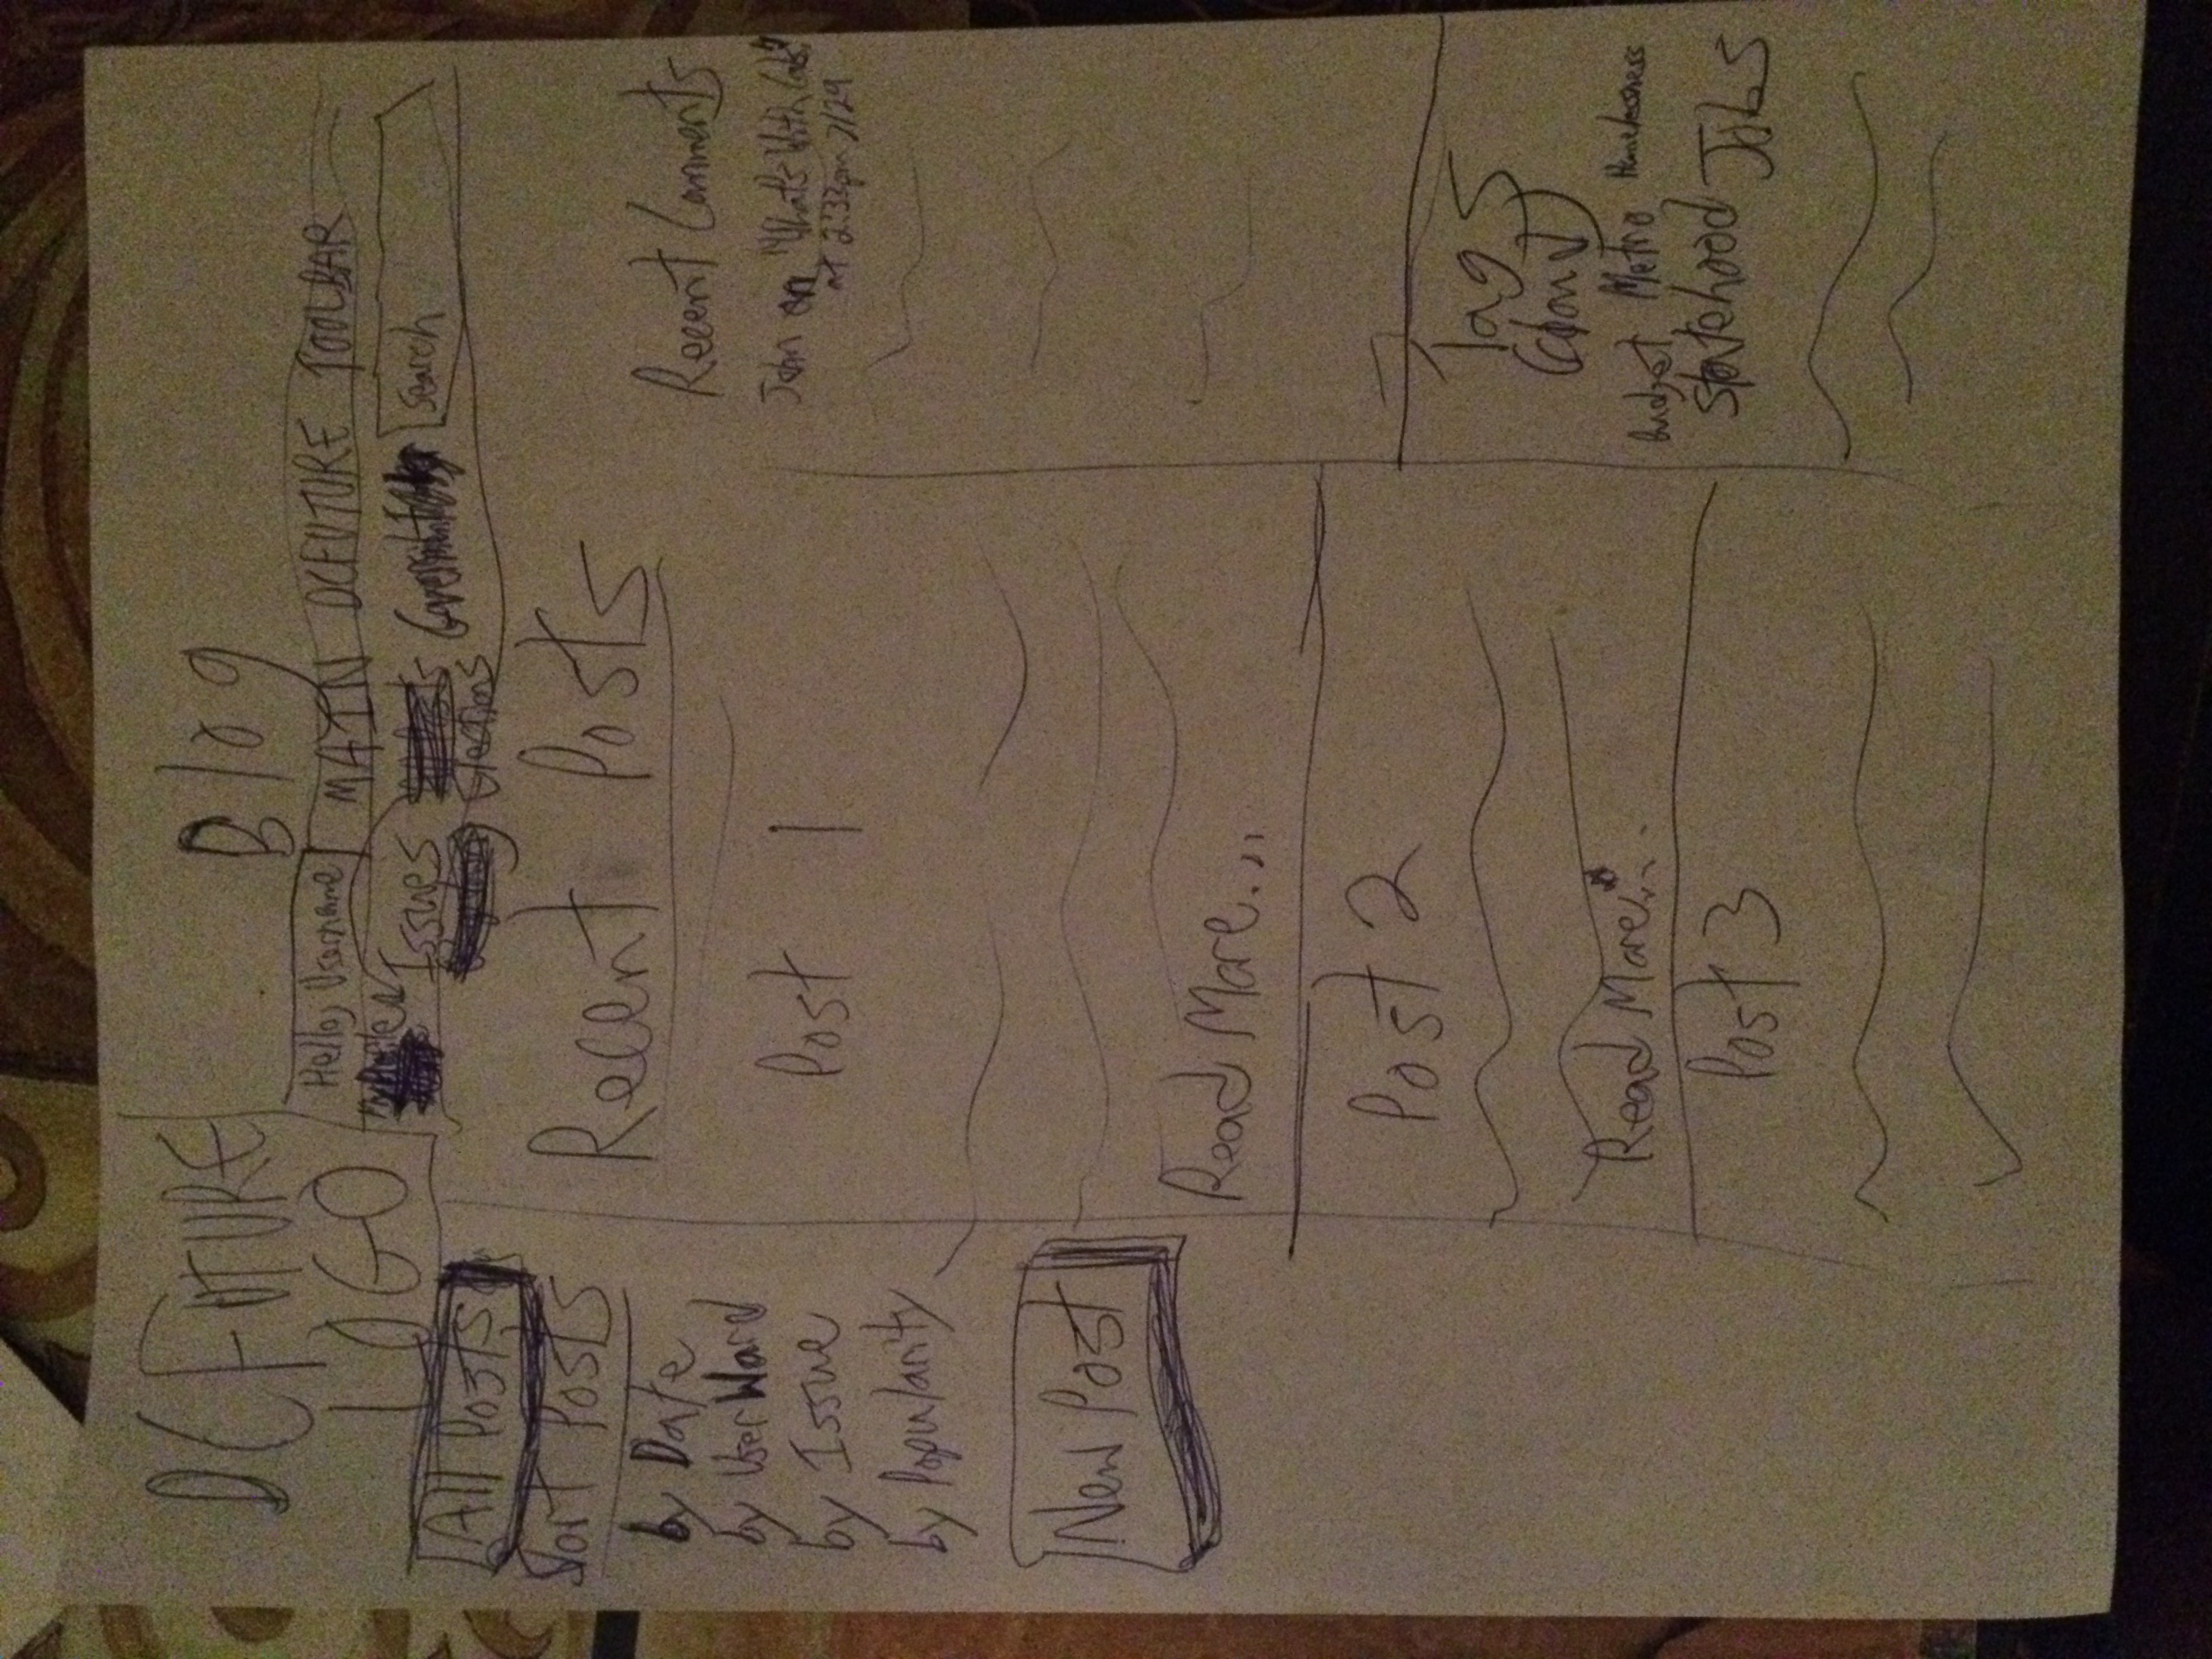 DCFUTURE
LOGO
Blog
Hello, Username
MAIN DCFUTURE TOOLBAR
Issues
Elections
Search
All Posts
Sort Posts
by Date
by User Ward
by Issue
by Popularity
New Post
Recent Posts
Post 1
Read More...
Post 2
Read More...
Post 3
Recent Comments
John on "What's With Cabs?"
at 2:33pm 7/29
Tags
(cloud)
Budget Metro Homelessness
Statehood Jobs